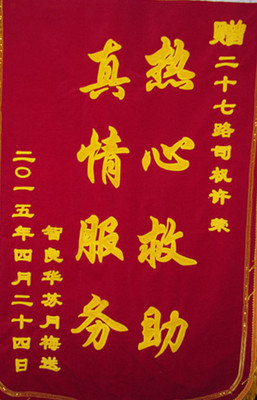 赠二十七路司机许荣
热心救助
真情服务
智良华苏月梅送
二〇一五年四月二十四日